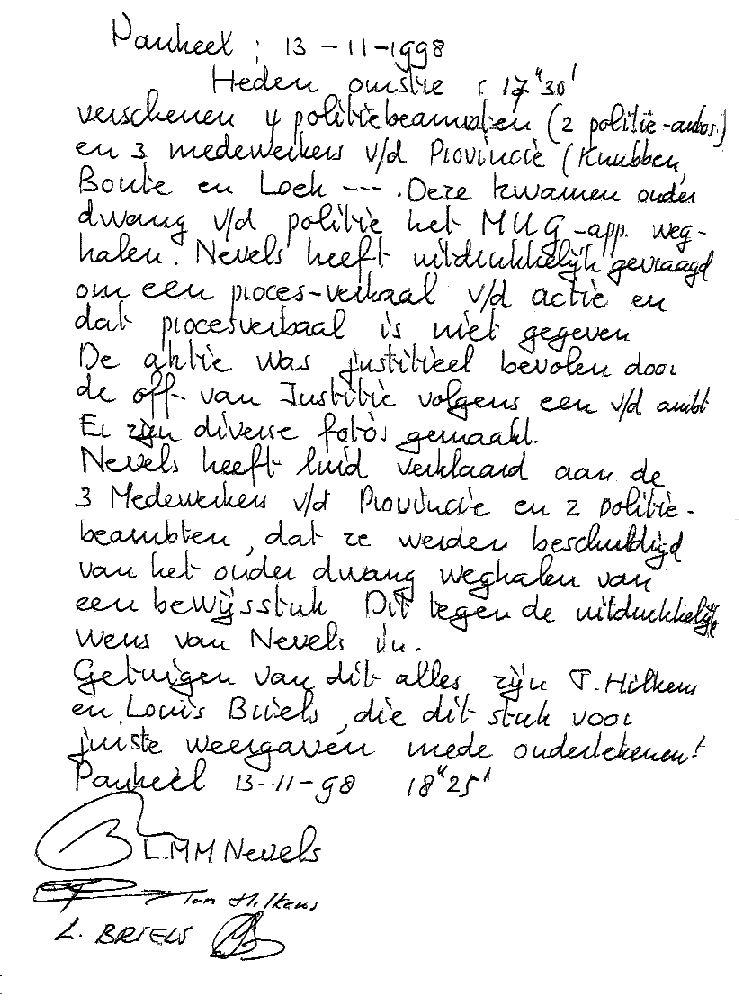 Panheel : 13-11-1998
Heden omstre : 17"30'
verschenen 4 politiebeambten (2 politie-autos)
en 3 medewerkers v/d Provincie (Knubben,
Boute en Loek ---. Deze kwamen onder
dwang v/d politie het MUG-app. weg-
halen. Nevels heeft uitdrukkelijk gevraagd
om een proces-verbaal v/d actie en
dat procesverbaal is niet gegeven
De aktie was justitieel bevolen door
de off. van Justitie volgens een v/d ambt
Er zijn diverse foto's gemaakt.
Nevels heeft luid verklaard aan de
3 Medewerkers v/d Provincie en 2 politie-
beambten, dat ze werden beschuldigd
van het onder dwang weghalen van
een bewijsstuk Dit tegen de uitdrukkelijke
wens van Nevels in.
Getuigen van dit alles zijn T. Hilkens
en Louis Briels, die dit stuk voor
juiste weergaven mede ondertekenen!
Panheel 13-11-98 18"25'
L.MM Nevels
Ton Hilkens
L. BRIELS